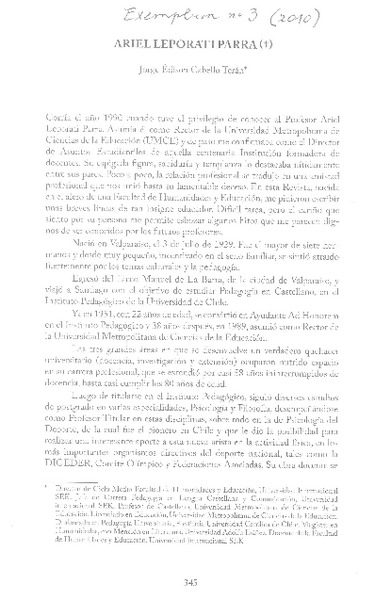 Exemplum nº 3 (2010)
ARIEL LEPORATI PARRA (†)
Jorge Edison Cabello Terán*
Corría el año 1990 cuando tuve el privilegio de conocer al Profesor Ariel
Leporati Parra. Asumía él como Rector de la Universidad Metropolitana de
Ciencias de la Educación (UMCE) y de paso me confirmaba como el Director
de Asuntos Estudiantiles de aquella centenaria Institución formadora de
docentes. Su espigada figura, sabiduría y templanza lo destacaba nítidamente
entre sus pares. Poco a poco, la relación profesional se tradujo en una amistad
profesional que nos unió hasta su lamentable deceso. En esta Revista, nacida
en el alero de una Facultad de Humanidades y Educación, me pidieron escribir
unas breves líneas de tan insigne educador. Difícil tarea, pero el cariño que
siento por su persona me permite esbozar algunos hitos que me parecen dig-
nos de ser conocidos por los futuros profesores.
Nació en Valparaíso, el 3 de julio de 1929. Fue el mayor de siete her-
manos y desde muy pequeño, incentivado en el seno familiar, se sintió atraído
fuertemente por los temas culturales y la pedagogía.
Egresó del Liceo Manuel de La Barra, de la ciudad de Valparaíso, y
viajó a Santiago con el objetivo de estudiar Pedagogía en Castellano, en el
Instituto Pedagógico de la Universidad de Chile.
Ya en 1951, con 22 años de edad, se convirtió en Ayudante Ad Honorem
en el Instituto Pedagógico y 38 años después, en 1989, asumió como Rector de
la Universidad Metropolitana de Ciencias de la Educación.
Las tres grandes áreas en que se desenvuelve un verdadero quehacer
universitario (docencia, investigación y extensión) ocuparon nutrido espacio
en su carrera profesional, que se extendió por casi 58 años ininterrumpidos de
docencia, hasta casi cumplir los 80 años de edad.
Luego de titularse en el Instituto Pedagógico, siguió diversos estudios
de postgrado en varias especialidades, Psicología y Filosofía, desempeñándose
como Profesor Titular en estas disciplinas, sobre todo en la de Psicología del
Deporte, de la cual fue el pionero en Chile y que le dio la posibilidad para
realizar una interesante aporte a esta nueva arista en la actividad física, en los
más importantes organismos directivos del deporte nacional, tales como la
DIGEDER, Comité Olímpico y Federaciones Asociadas. Su obra docente se
* Director de Ciclo Medio Facultad de Humanidades y Educación, Universidad Internacional
SEK. Jefe de Carrera Pedagogía en Lengua Castellana y Comunicación, Universidad
Internacional SEK. Profesor de Castellano, Universidad Metropolitana de Ciencias de la
Educación. Licenciado en Educación, Universidad Metropolitana de Ciencias de la Educación.
Diplomado en Pedagogía Universitaria, Pontificia Universidad Católica de Chile. Magíster en
Humanidades, con Mención en Literatura, Universidad Adolfo Ibáñez. Docente de la Facultad
de Humanidades y Educación, Universidad Internacional SEK
345